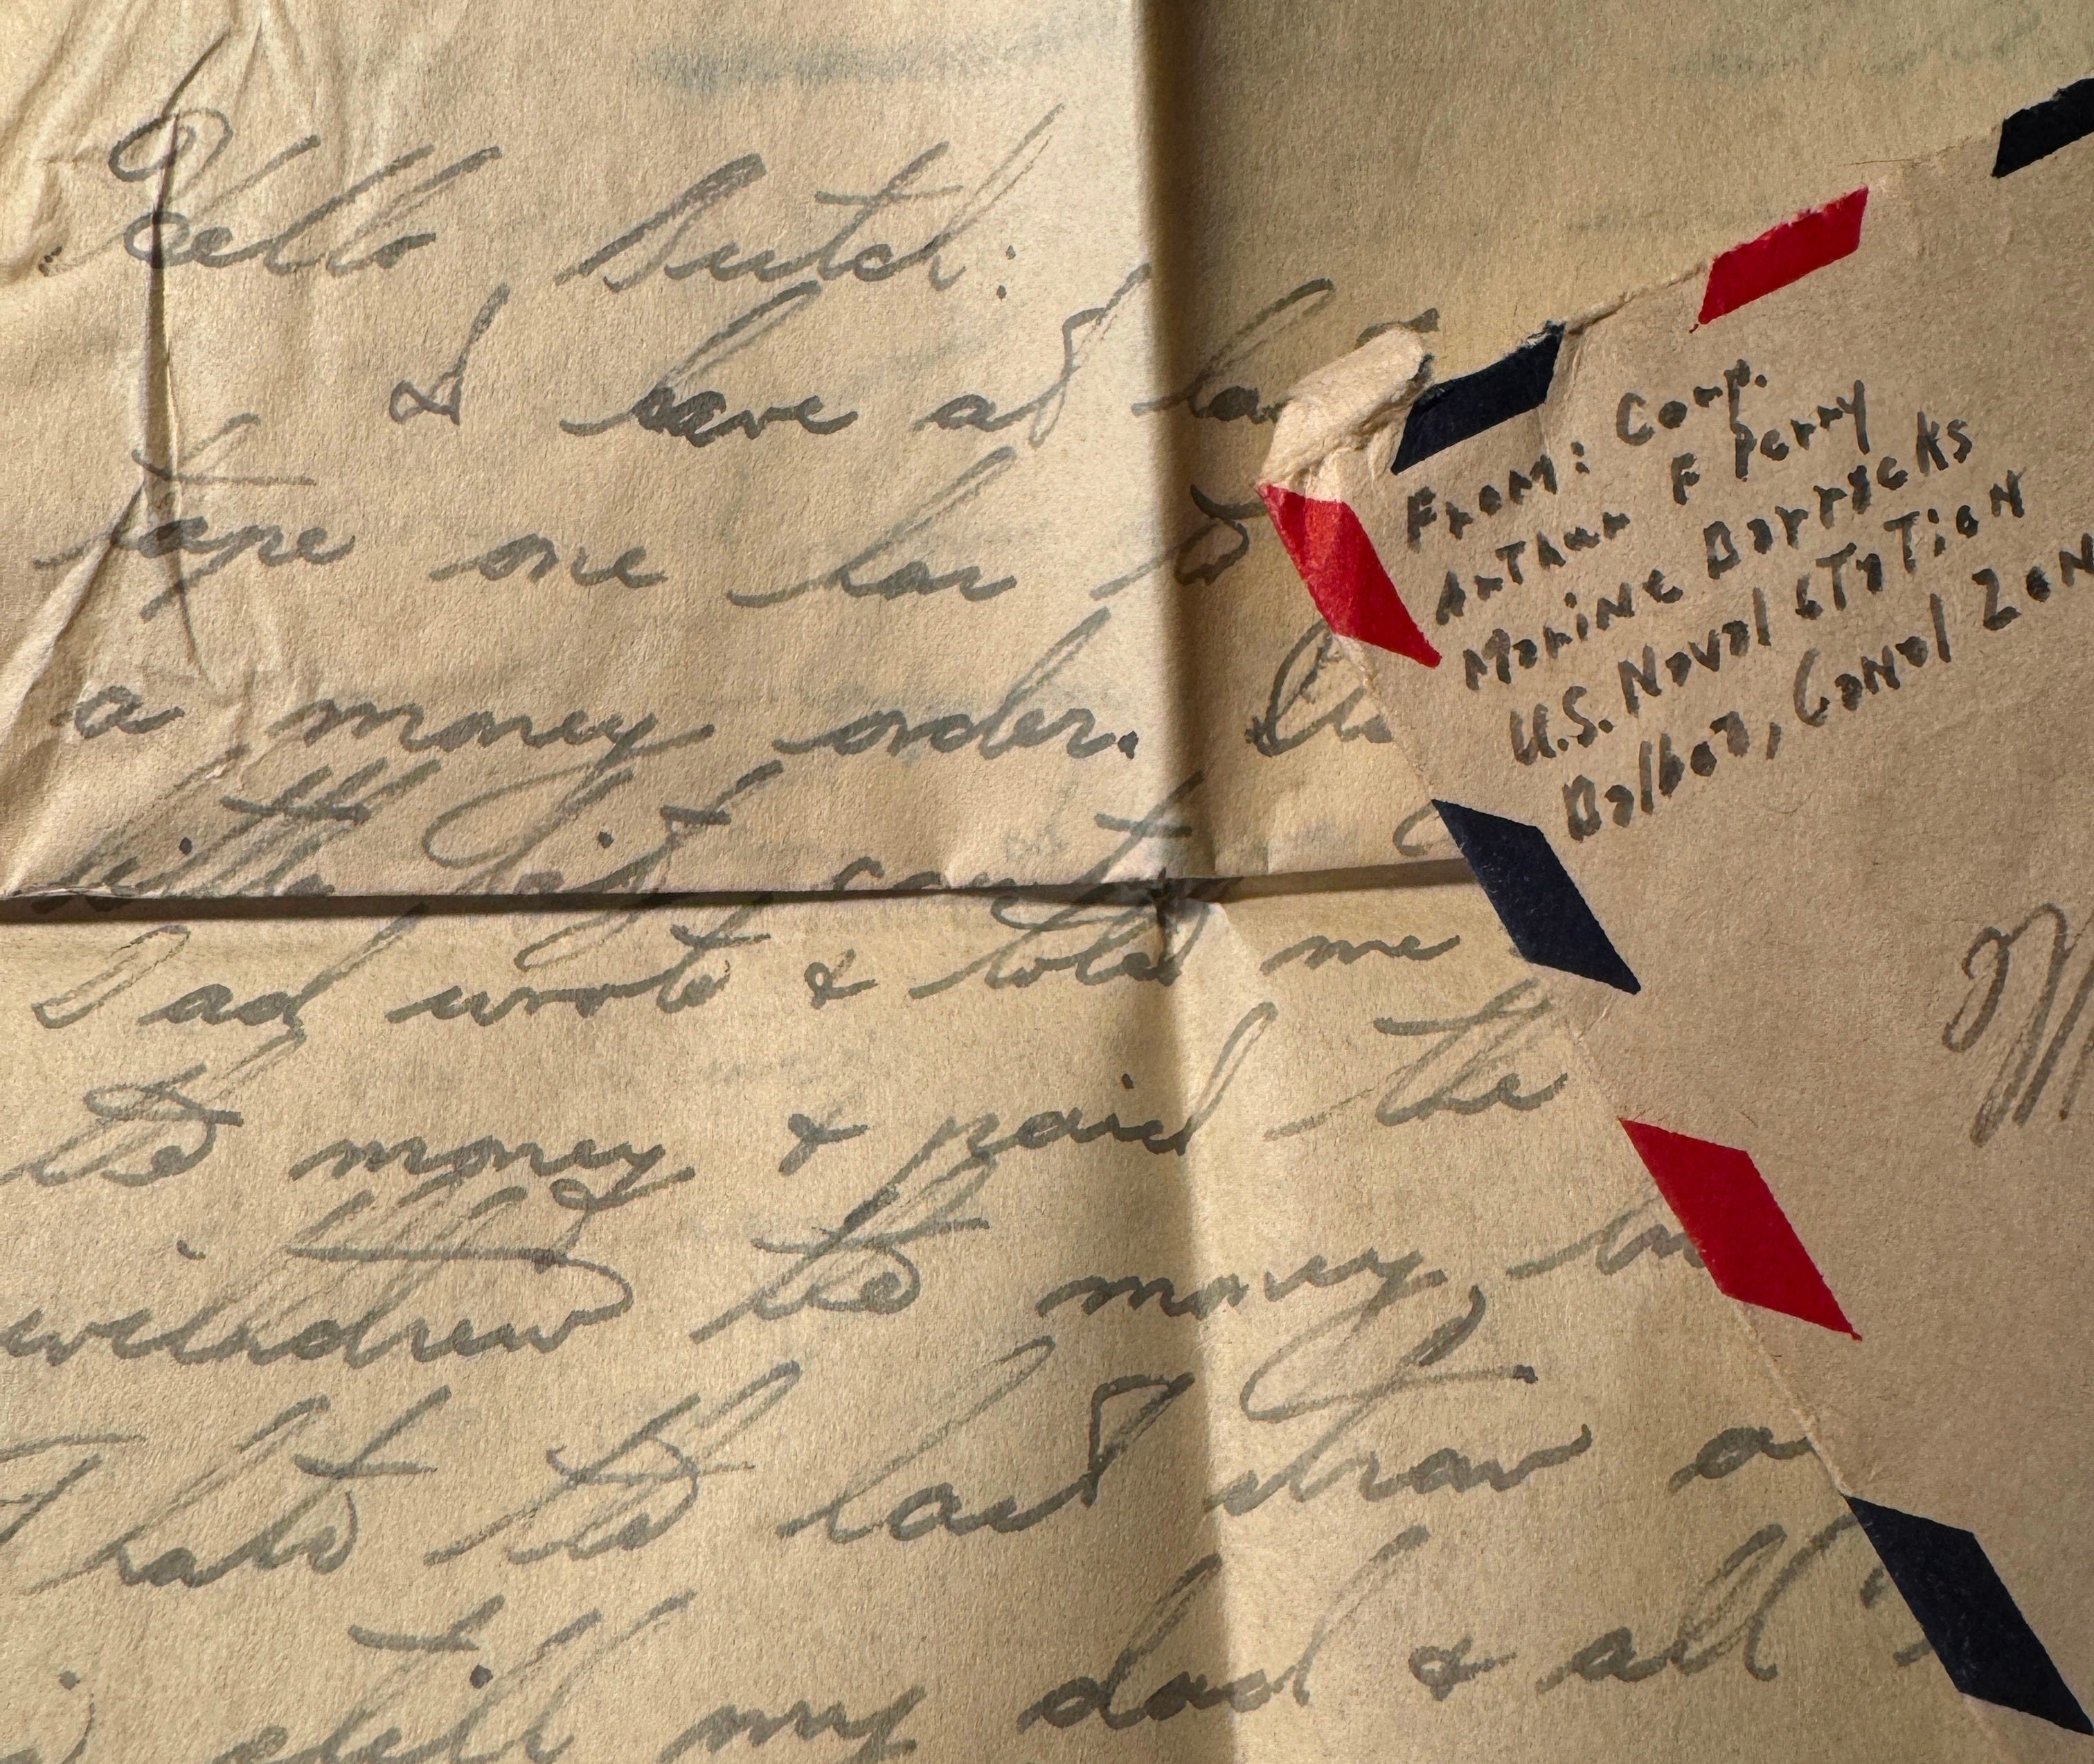 Hello Butch:
I have at la
tape one has to
a money order.
little bit can't
Dad wrote & told me
the money & paid the
withdrew the money, bu
Thats the last straw a
still my dad & all
From: Corp.
Arthur F Perry
Marine Barracks
U.S. Naval Station
Balboa, Canal Zon